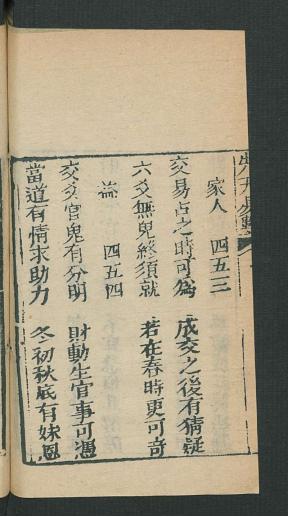 家人　四五三
交易占之時可爲　成交之後有猜疑
六爻無鬼終須就　若在春時更可奇
益　四五四
交爻官鬼有分明　財動生官事可憑
當道有情求助力　冬初秋底有妹恩